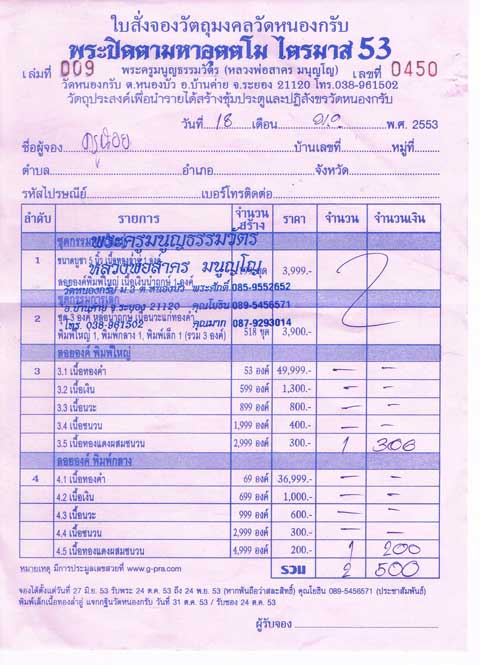 ใบสั่งจองวัตถุมงคลวัดหนองกรับ
พระปิดตามหาอุตตโม ไตรมาส 53
เล่มที่ 009 พระครูมนูญธรรมวัตร (หลวงพ่อสาคร มนุญโญ) เลขที่ 0450
วัดหนองกรับ ต.หนองบัว อ.บ้านค่าย จ.ระยอง 21120 โทร.038-961502
วัตถุประสงค์เพื่อนำรายได้สร้างซุ้มประตูและปฏิสังขรวัดหนองกรับ
วันที่ 18 เดือน พ.ศ. 2553
ชื่อผู้จอง บ้านเลขที่ หมู่ที่
ตำบล อำเภอ จังหวัด
รหัสไปรษณีย์ เบอร์โทรติดต่อ
ลำดับ รายการ จำนวนสร้าง ราคา จำนวน จำนวนเงิน
พระครูมนูญธรรมวัตร
1 ขนาดบูชา 5 นิ้ว 3,999.-
หลวงพ่อสาคร มนุญโญ
วัดหนองกรับ ม.2 ต.หนองบัว พระศักดิ์ 085-9552652
อ.บ้านค่าย จ.ระยอง 21120 คุณโยธิน 089-5456571
โทร. 038-961502 คุณมาก 087-9293014
2 พิมพ์ใหญ่ 1, พิมพ์กลาง 1, พิมพ์เล็ก 1 (รวม 3 องค์) 518 ชุด 3,900.-
ลอยองค์ พิมพ์ใหญ่
3 3.1 เนื้อทองคำ 53 องค์ 49,999.- — —
3.2 เนื้อเงิน 599 องค์ 1,300.- — —
3.3 เนื้อนวะ 899 องค์ 800.- — —
3.4 เนื้อชนวน 1,999 องค์ 400.- — —
3.5 เนื้อทองแดงผสมชนวน 2,999 องค์ 300.- 1 300
ลอยองค์ พิมพ์กลาง
4 4.1 เนื้อทองคำ 69 องค์ 36,999.- — —
4.2 เนื้อเงิน 699 องค์ 1,000.- — —
4.3 เนื้อนวะ 999 องค์ 600.- — —
4.4 เนื้อชนวน 2,999 องค์ 300.- — —
4.5 เนื้อทองแดงผสมชนวน 4,999 องค์ 200.- 1 200
หมายเหตุ มีการประมูลเลขสวยที่ www.g-pra.com รวม 2 500
จองได้ตั้งแต่วันที่ 27 มิ.ย. 53 รับพระ 24 ต.ค. 53 ถึง 24 พ.ย. 53 (หากพ้นถือว่าสละสิทธิ์) คุณโยธิน 089-5456571 (ประชาสัมพันธ์)
พิมพ์เล็กเนื้อทองล่ำอู่ แจกกฐินวัดหนองกรับ วันที่ 31 ต.ค. 53 / รับของ 24 ต.ค. 53
ผู้รับจอง